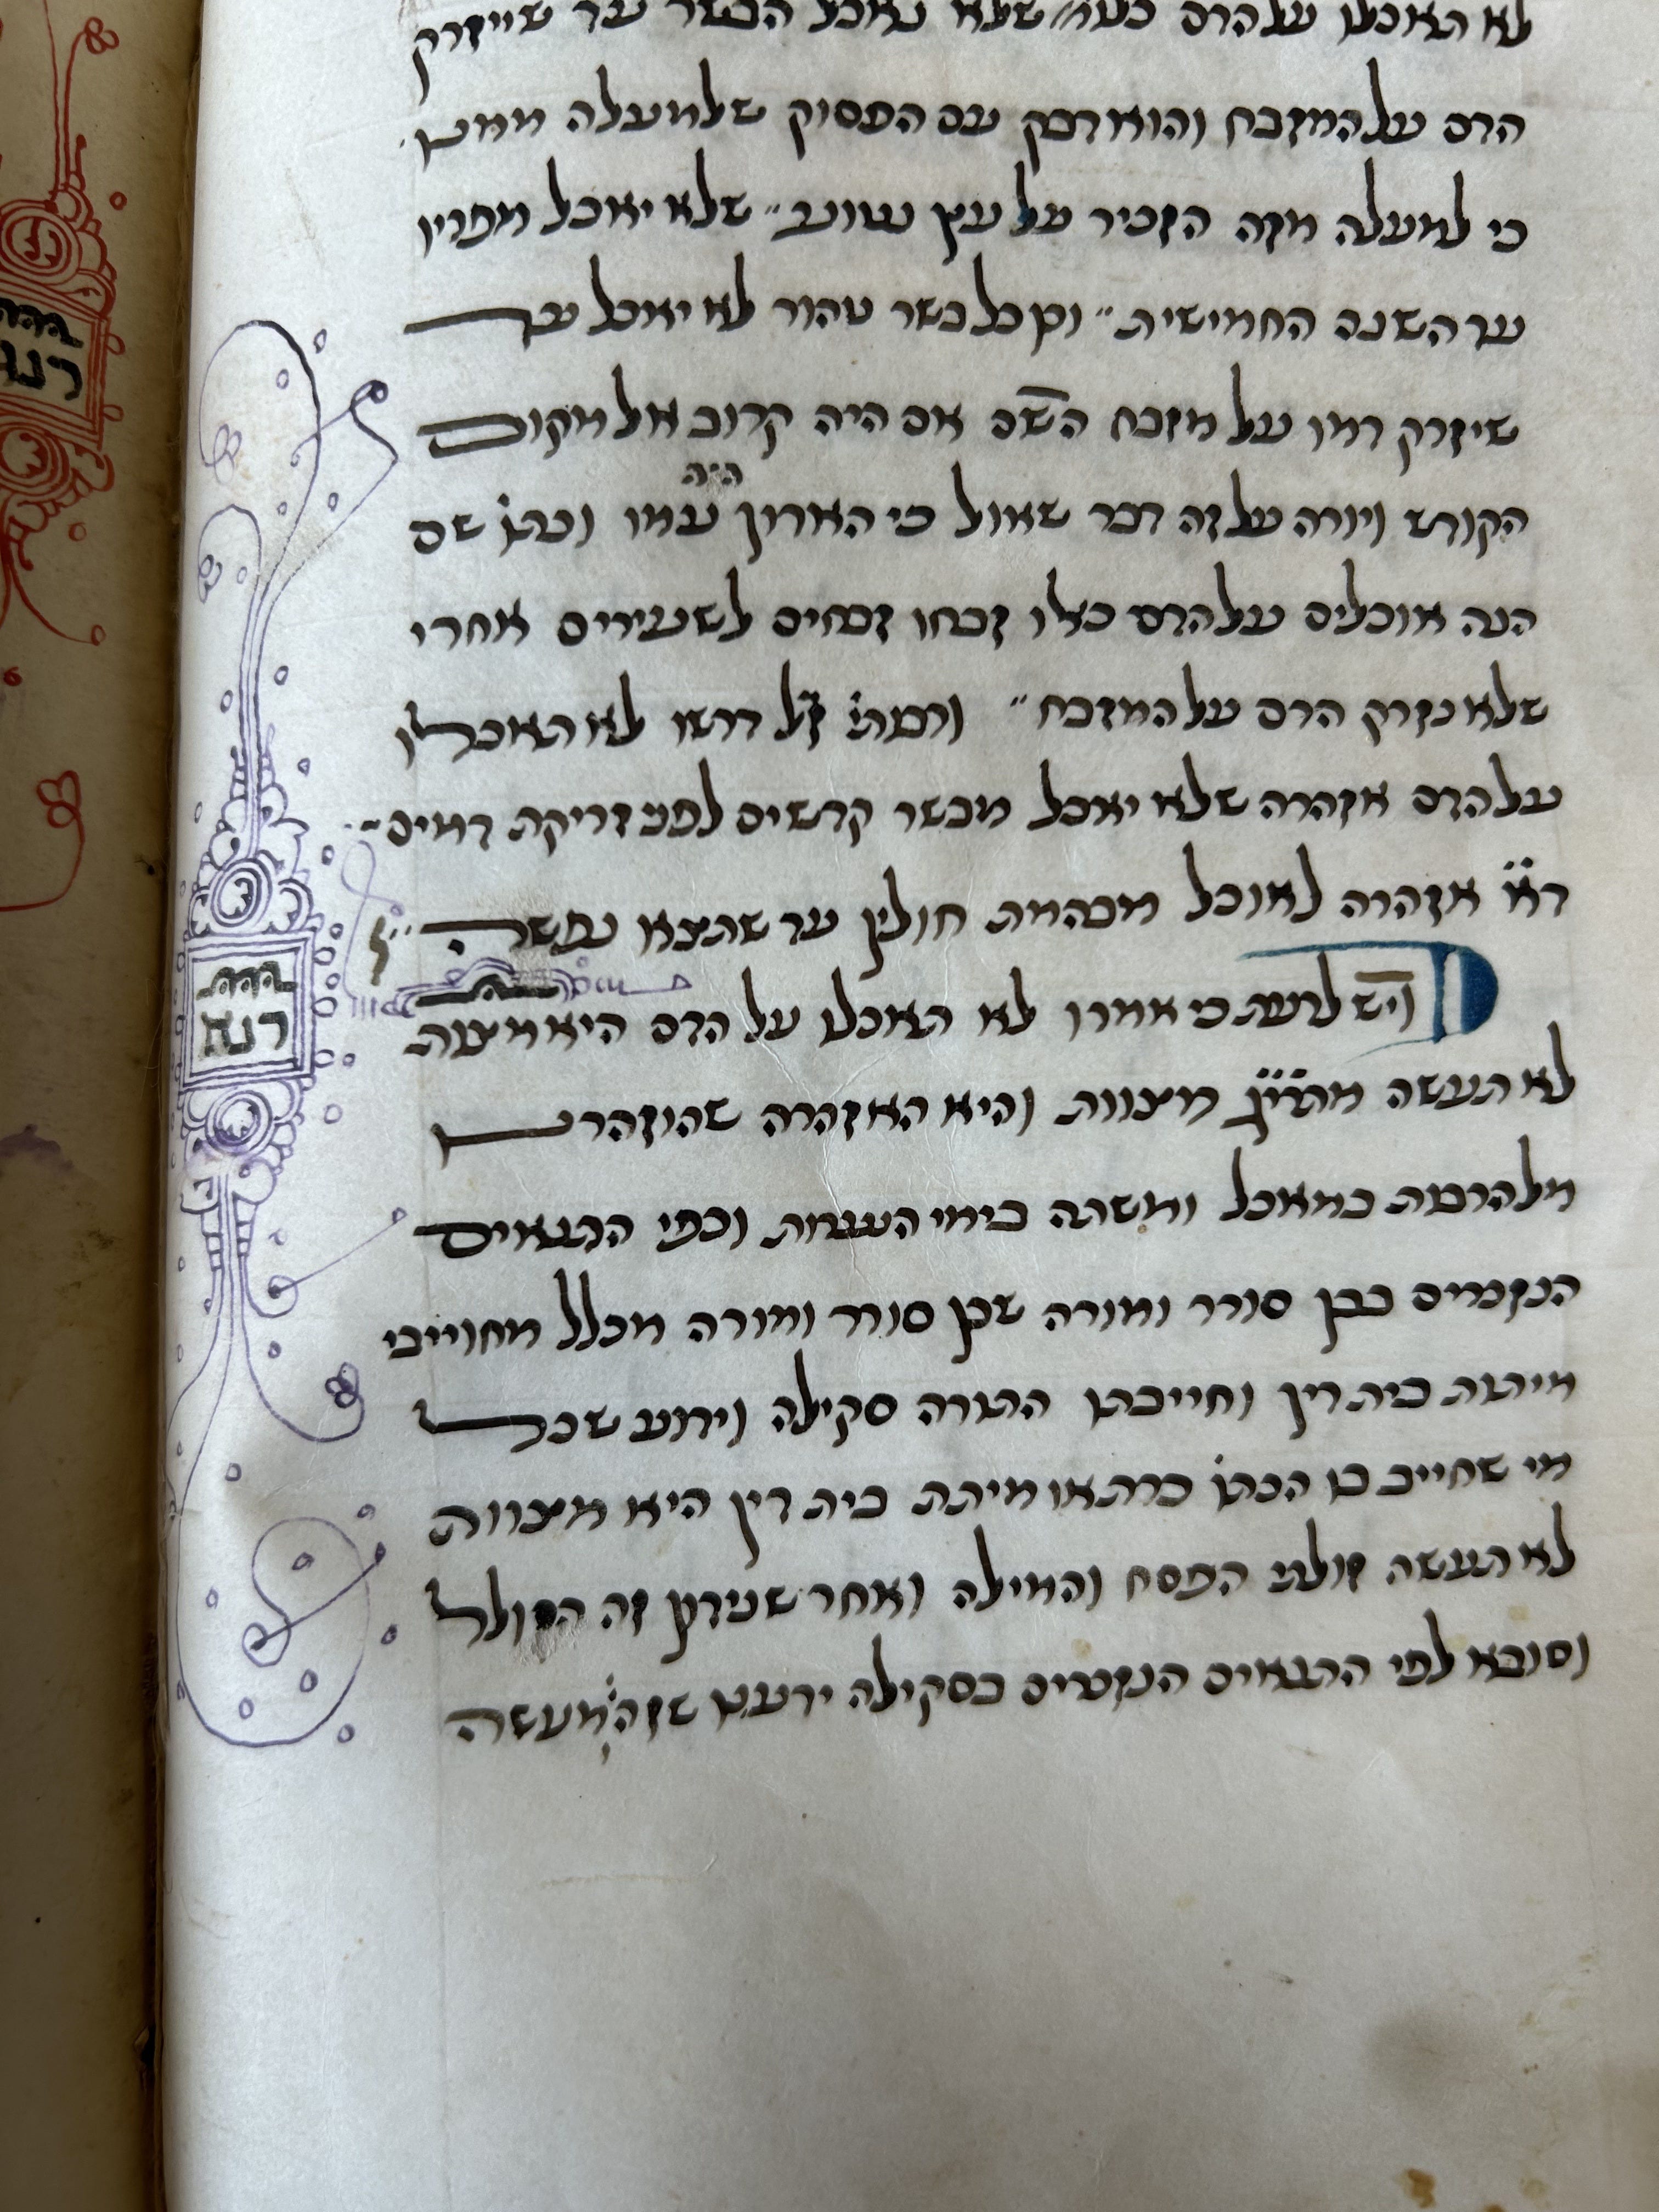 לא תאכלו על הדם כלו׳ שלא נאכל הבשר עד שייזרק
הדם על המזבח והוא דבק עם הפסוק שלמעלה ממנו
כי למעלה מזה הזכיר כל עץ שוע׳ שלא יאכל מפריו
עד השנה החמישית וכן כל בשר טהור לא יאכל עד
שיזרק דמו על מזבח השם אם היה קרוב אל מקום
היה
הקודש ויורה על זה דבר שאול כי הארון עמו וכתו׳ שם
הנה אוכלים על הדם כאלו זבחו זבחים לשעירים אחרי
שלא נזרק הדם על המזבח ורבותי׳ ז״ל דרשו לא תאכלו
על הדם אזהרה שלא יאכל מבשר קדשים לפני זריקת דמים
ד״א אזהרה לאוכל מבהמת חולין עד שתצא נפשה
ויש לדעת כי אמרו לא תאכלו על הדם היא מצות
לא תעשה מתרי״ג מצוות והיא האזהרה שהוזהרנו
מלהרבות במאכל ומשתה בימי הנערות וכפי התנאים
הנזכרים בבן סורר ומורה שבן סורר ומורה מכלל מחוייבי
מיתות בית דין וחייבתו התורה סקילה וידוע שכל
מי שחייב בו הכתו׳ כרת או מיתת בית דין היא מצוות
לא תעשה זולתי הפסח והמילה ואחר שנידון זה הזולל
וסובא לפי התנאים הנזכרים בסקילה ידענו שזה מעשה
רנח